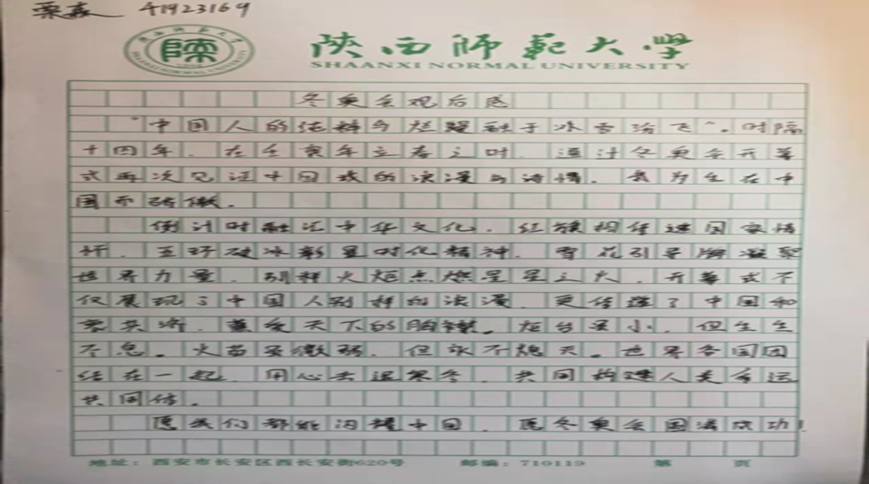 栗鑫 41923169
陕西师范大学
SHAANXI NORMAL UNIVERSITY
冬奥会观后感
“中国人的纯粹与烂漫融于冰雪纷飞”。时隔
十四年，在壬寅年立春之时，通过冬奥会开幕
式再次见证中国式的浪漫与诗情，我为生在中
国而骄傲。
倒计时融汇中华文化，红旗相传连国家情
怀，五环破冰彰显时代精神，雪花引导牌凝聚
世界力量，别样火炬点燃星星之火，开幕式不
仅展现了中国人别样的浪漫，更传递了中国和
衷共济，兼爱天下的胸襟。炬台虽小，但生生
不息。火苗虽微弱，但永不熄灭。世界各国团
结在一起，用心去温寒冬，共同构建人类命运
共同体。
愿我们都能闪耀中国，愿冬奥会圆满成功！
地址：西安市长安区西长安街620号 邮编：710119 第 页